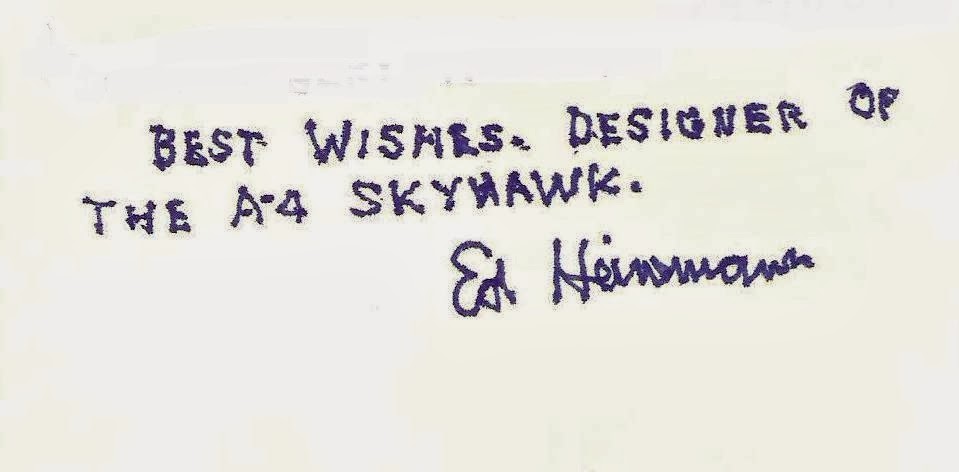 BEST WISHES. DESIGNER OF
THE A-4 SKYHAWK.
Ed Heinemann